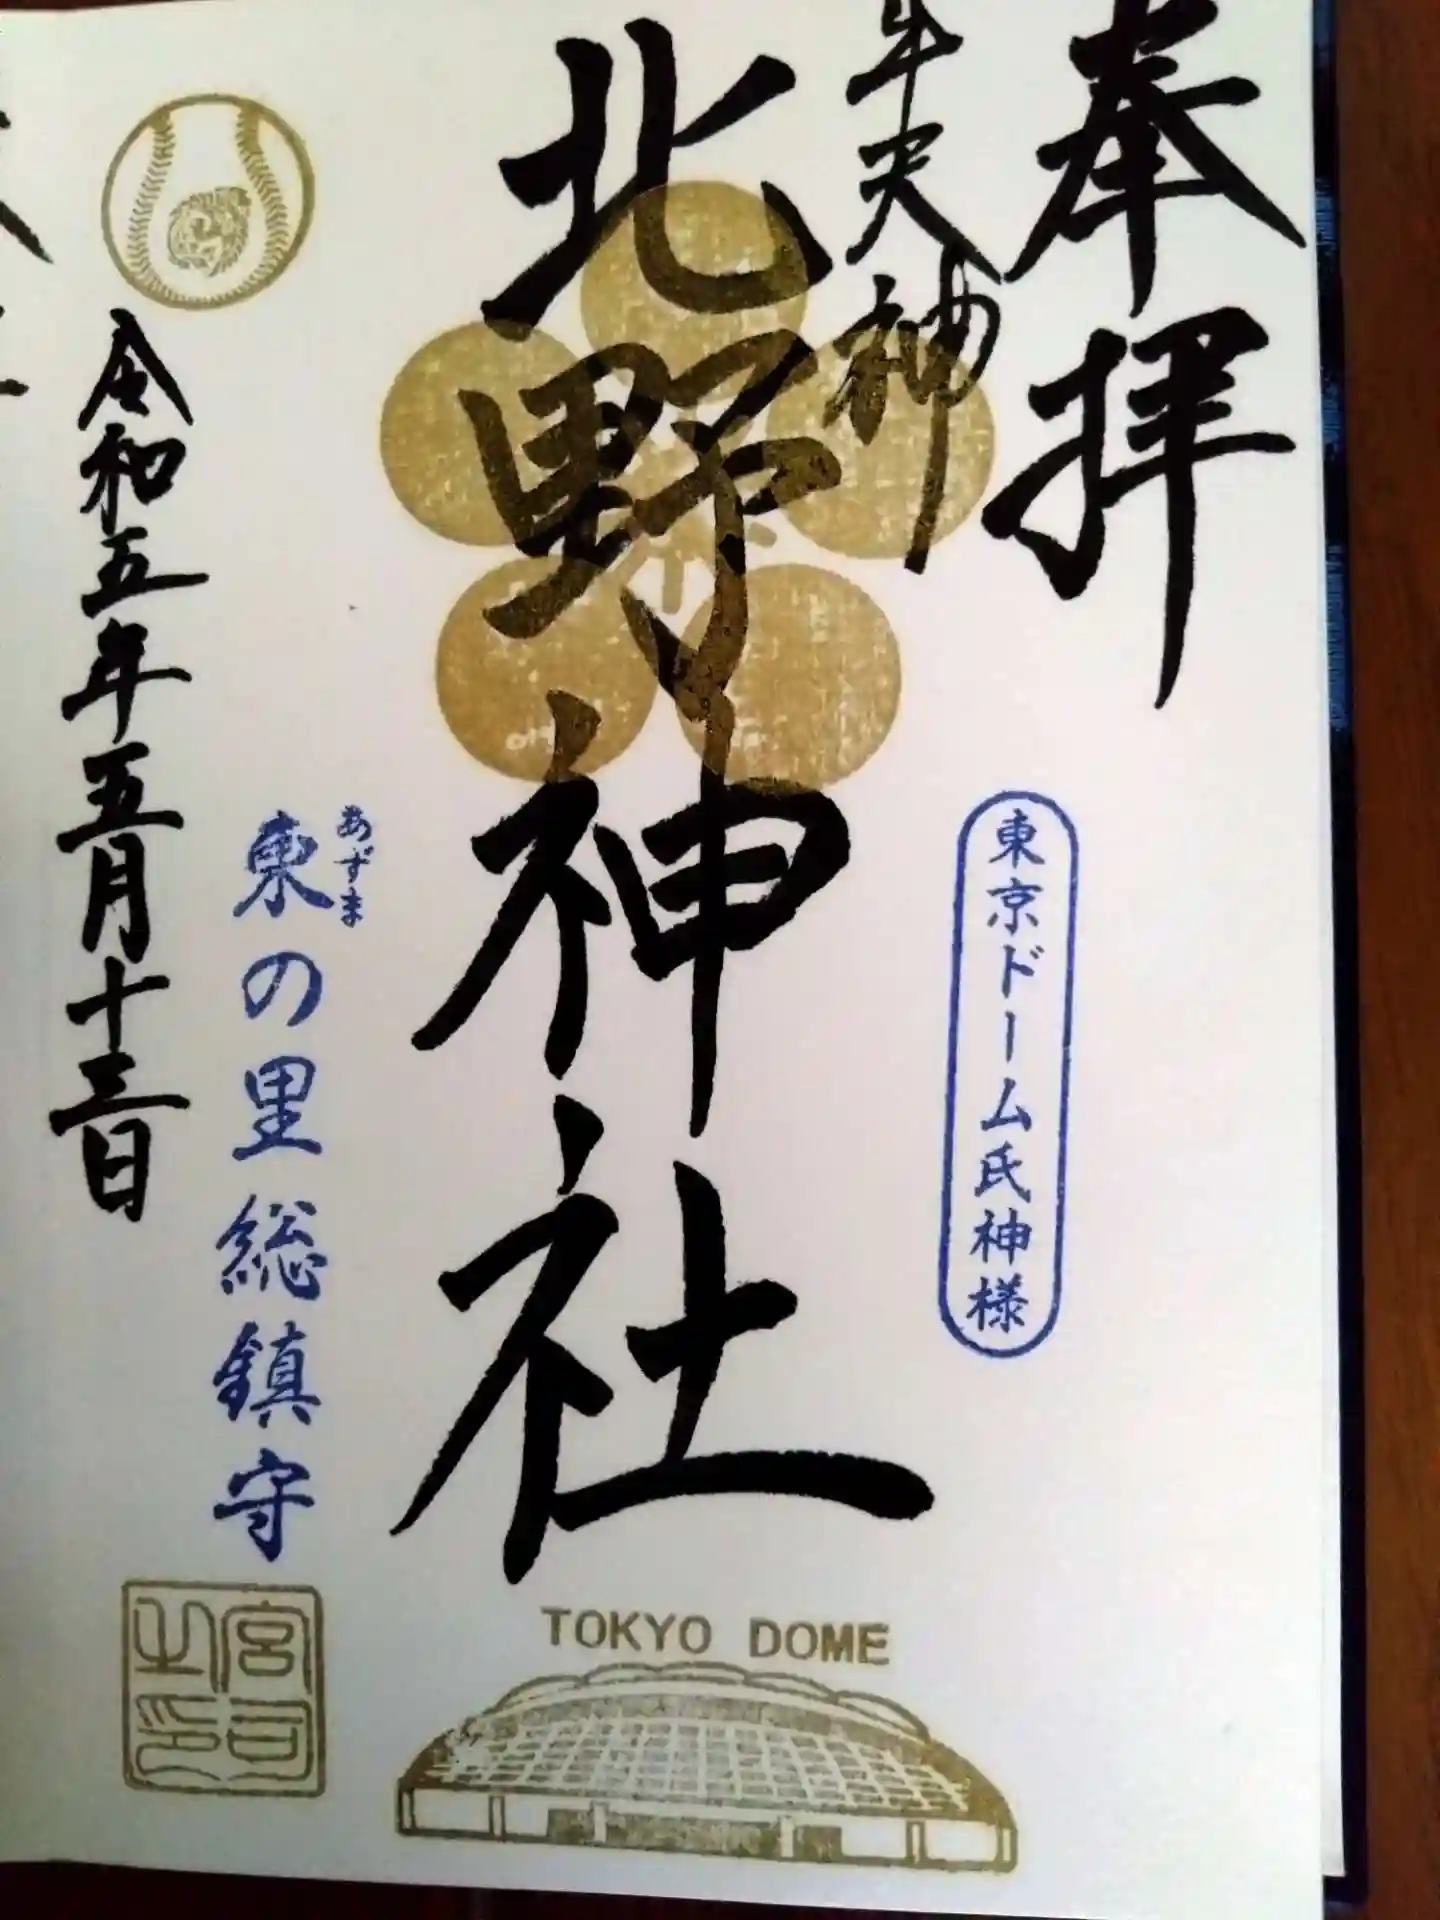 奉拝
牛天神
北野神社
東京ドーム氏神様
あずま
東の里総鎮守
令和五年五月十三日
TOKYO DOME
宮司之印